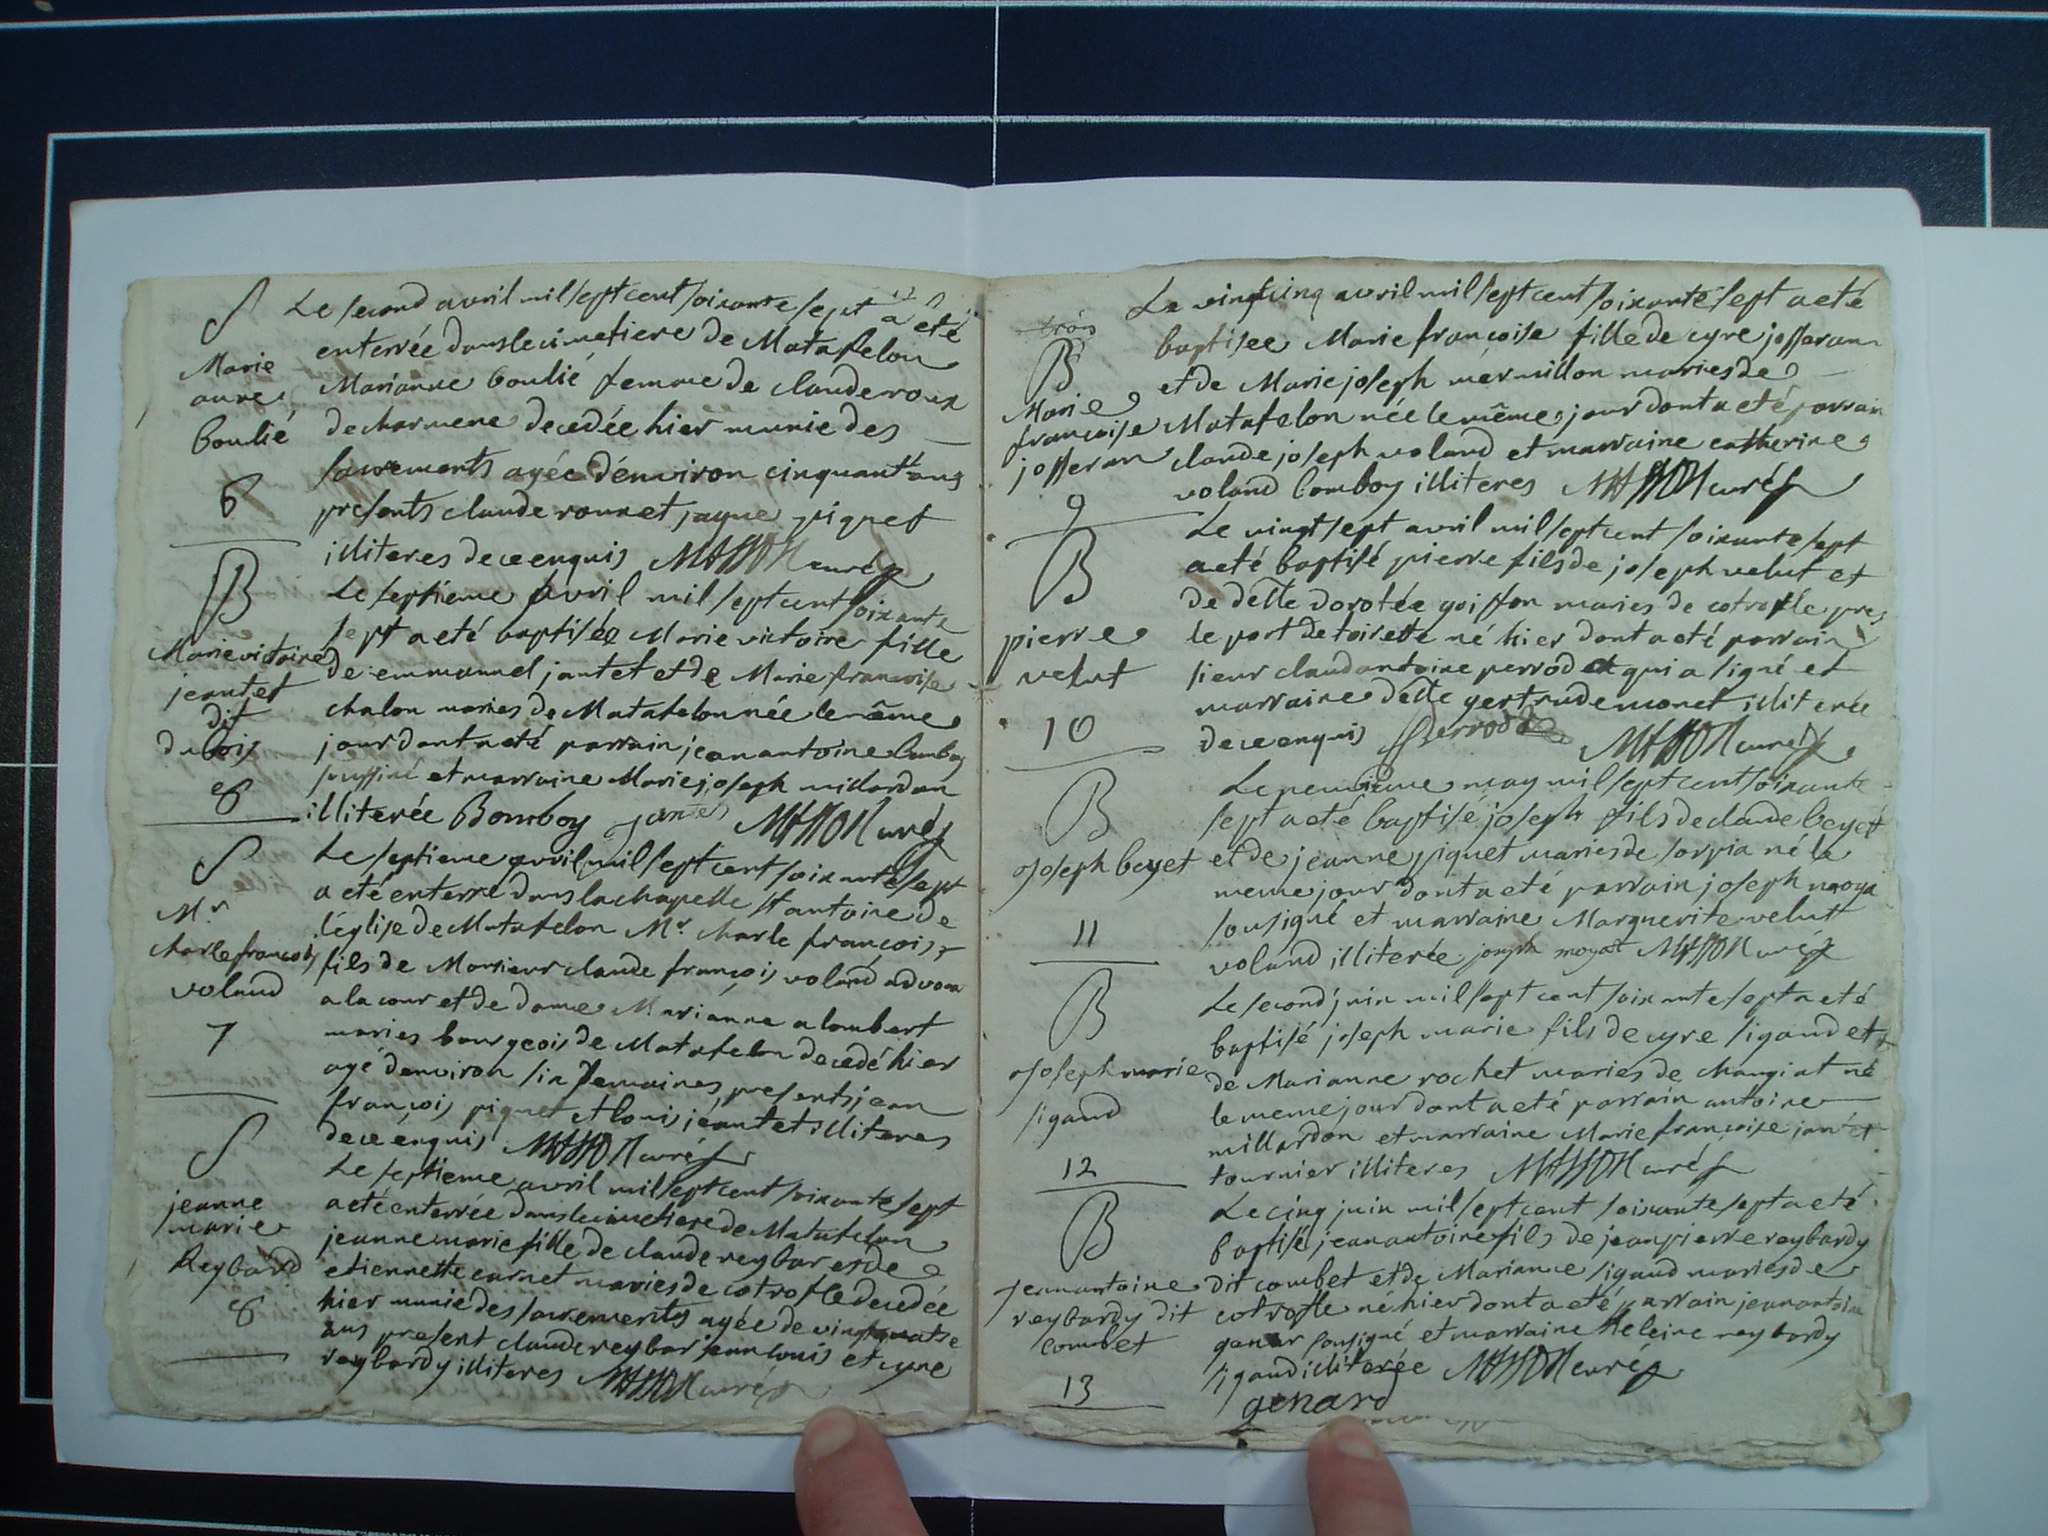 S
Marie
anne
boulié
6
Le second avril mil sept cent soixante sept a eté
enterrée dans le cimetiere de Matafelon
Marianne boulié femme de claude roux
de charmene decedée hier munie des
sacrements agée d'environ cinquant'ans
presents claude roux et jayme piquet
illiteres de ce enquis MASSON curé
B
Marie victoire
jeantet
dit
dubois
8
Le septieme avril mil sept cent soixante
sept a eté baptisée Marie victoire fille
de emmanuel jantet et de Marie françoise
chalon maries de Matafelon née le même
jour dont a eté parrain jean antoine bomboy
soussiné et marraine Marie joseph millardon
illiterée Bomboy jantet MASSON curé
S
Mr
charle françois
voland
7
Le septieme avril mil sept cent soixante sept
a eté enterré dans la chapelle st antoine de
l'église de Matafelon Mr charle françois
fils de Monsieur claude françois voland advocat
a la cour et de dame Marianne alombert
maries bourgeois de Matafelon decedé hier
agé d'environ six semaines, presents jean
françois piquet et louis jeantet illiteres
de ce enquis MASSON curé
S
jeanne
marie
Reybard
8
Le septieme avril mil sept cent soixante sept
a eté enterrée dans le cimetiere de Matafelon
jeanne marie fille de claude reybar et de
etiennette carnet maries de cotrofle decedée
hier munie des sacrements agée de vingt quatre
ans present claude reybar jean louis et cyre
reybardy illiteres MASSON curé
B
Marie
françoise
josseran
9
Le vingt cinq avril mil sept cent soixante sept a eté
baptisee Marie françoise fille de cyre josseran
et de Marie joseph mermillon maries de
Matafelon née le même jour dont a eté parrain
claude joseph voland et marraine catherine
voland bomboy illiteres MASSON curé
B
pierre
velut
10
Le vingt sept avril mil sept cent soixante sept
a eté baptisé pierre fils de joseph velut et
de delle dorotée goiffon maries de cotrofle pres
le port de toirette né hier dont a eté parrain
sieur claud antoine perrodet qui a signé et
marraine delle gertrude monet illiterée
de ce enquis Perrodet MASSON curé
B
joseph beyet
11
Le neuvieme may mil sept cent soixante
sept a eté baptisé joseph fils de claude beyet
et de jeanne piquet maries de sorpia né le
meme jour dont a eté parrain joseph
sousigné et marraine Marguerite velut
voland illiterée joseph moyat MASSON curé
B
joseph marie
sigaud
12
Le second juin mil sept cent soixante sept a eté
baptisé joseph marie fils de cyre sigaud et
de Marianne rochet maries de changiat né
le meme jour dont a eté parrain antoine
millardon et marraine Marie françoise jantet
tournier illiteres MASSON curé
B
jean antoine
reybardy dit
combet
13
Le cinq juin mil sept cent soixante sept a eté
baptisé jean antoine fils de jean pierre reybardy
dit combet et de Marianne sigaud maries de
cotrofle né hier dont a eté parrain jean antoine
genar sousigné et marraine heleine reybardy
sigaud illiterée MASSON curé
genard